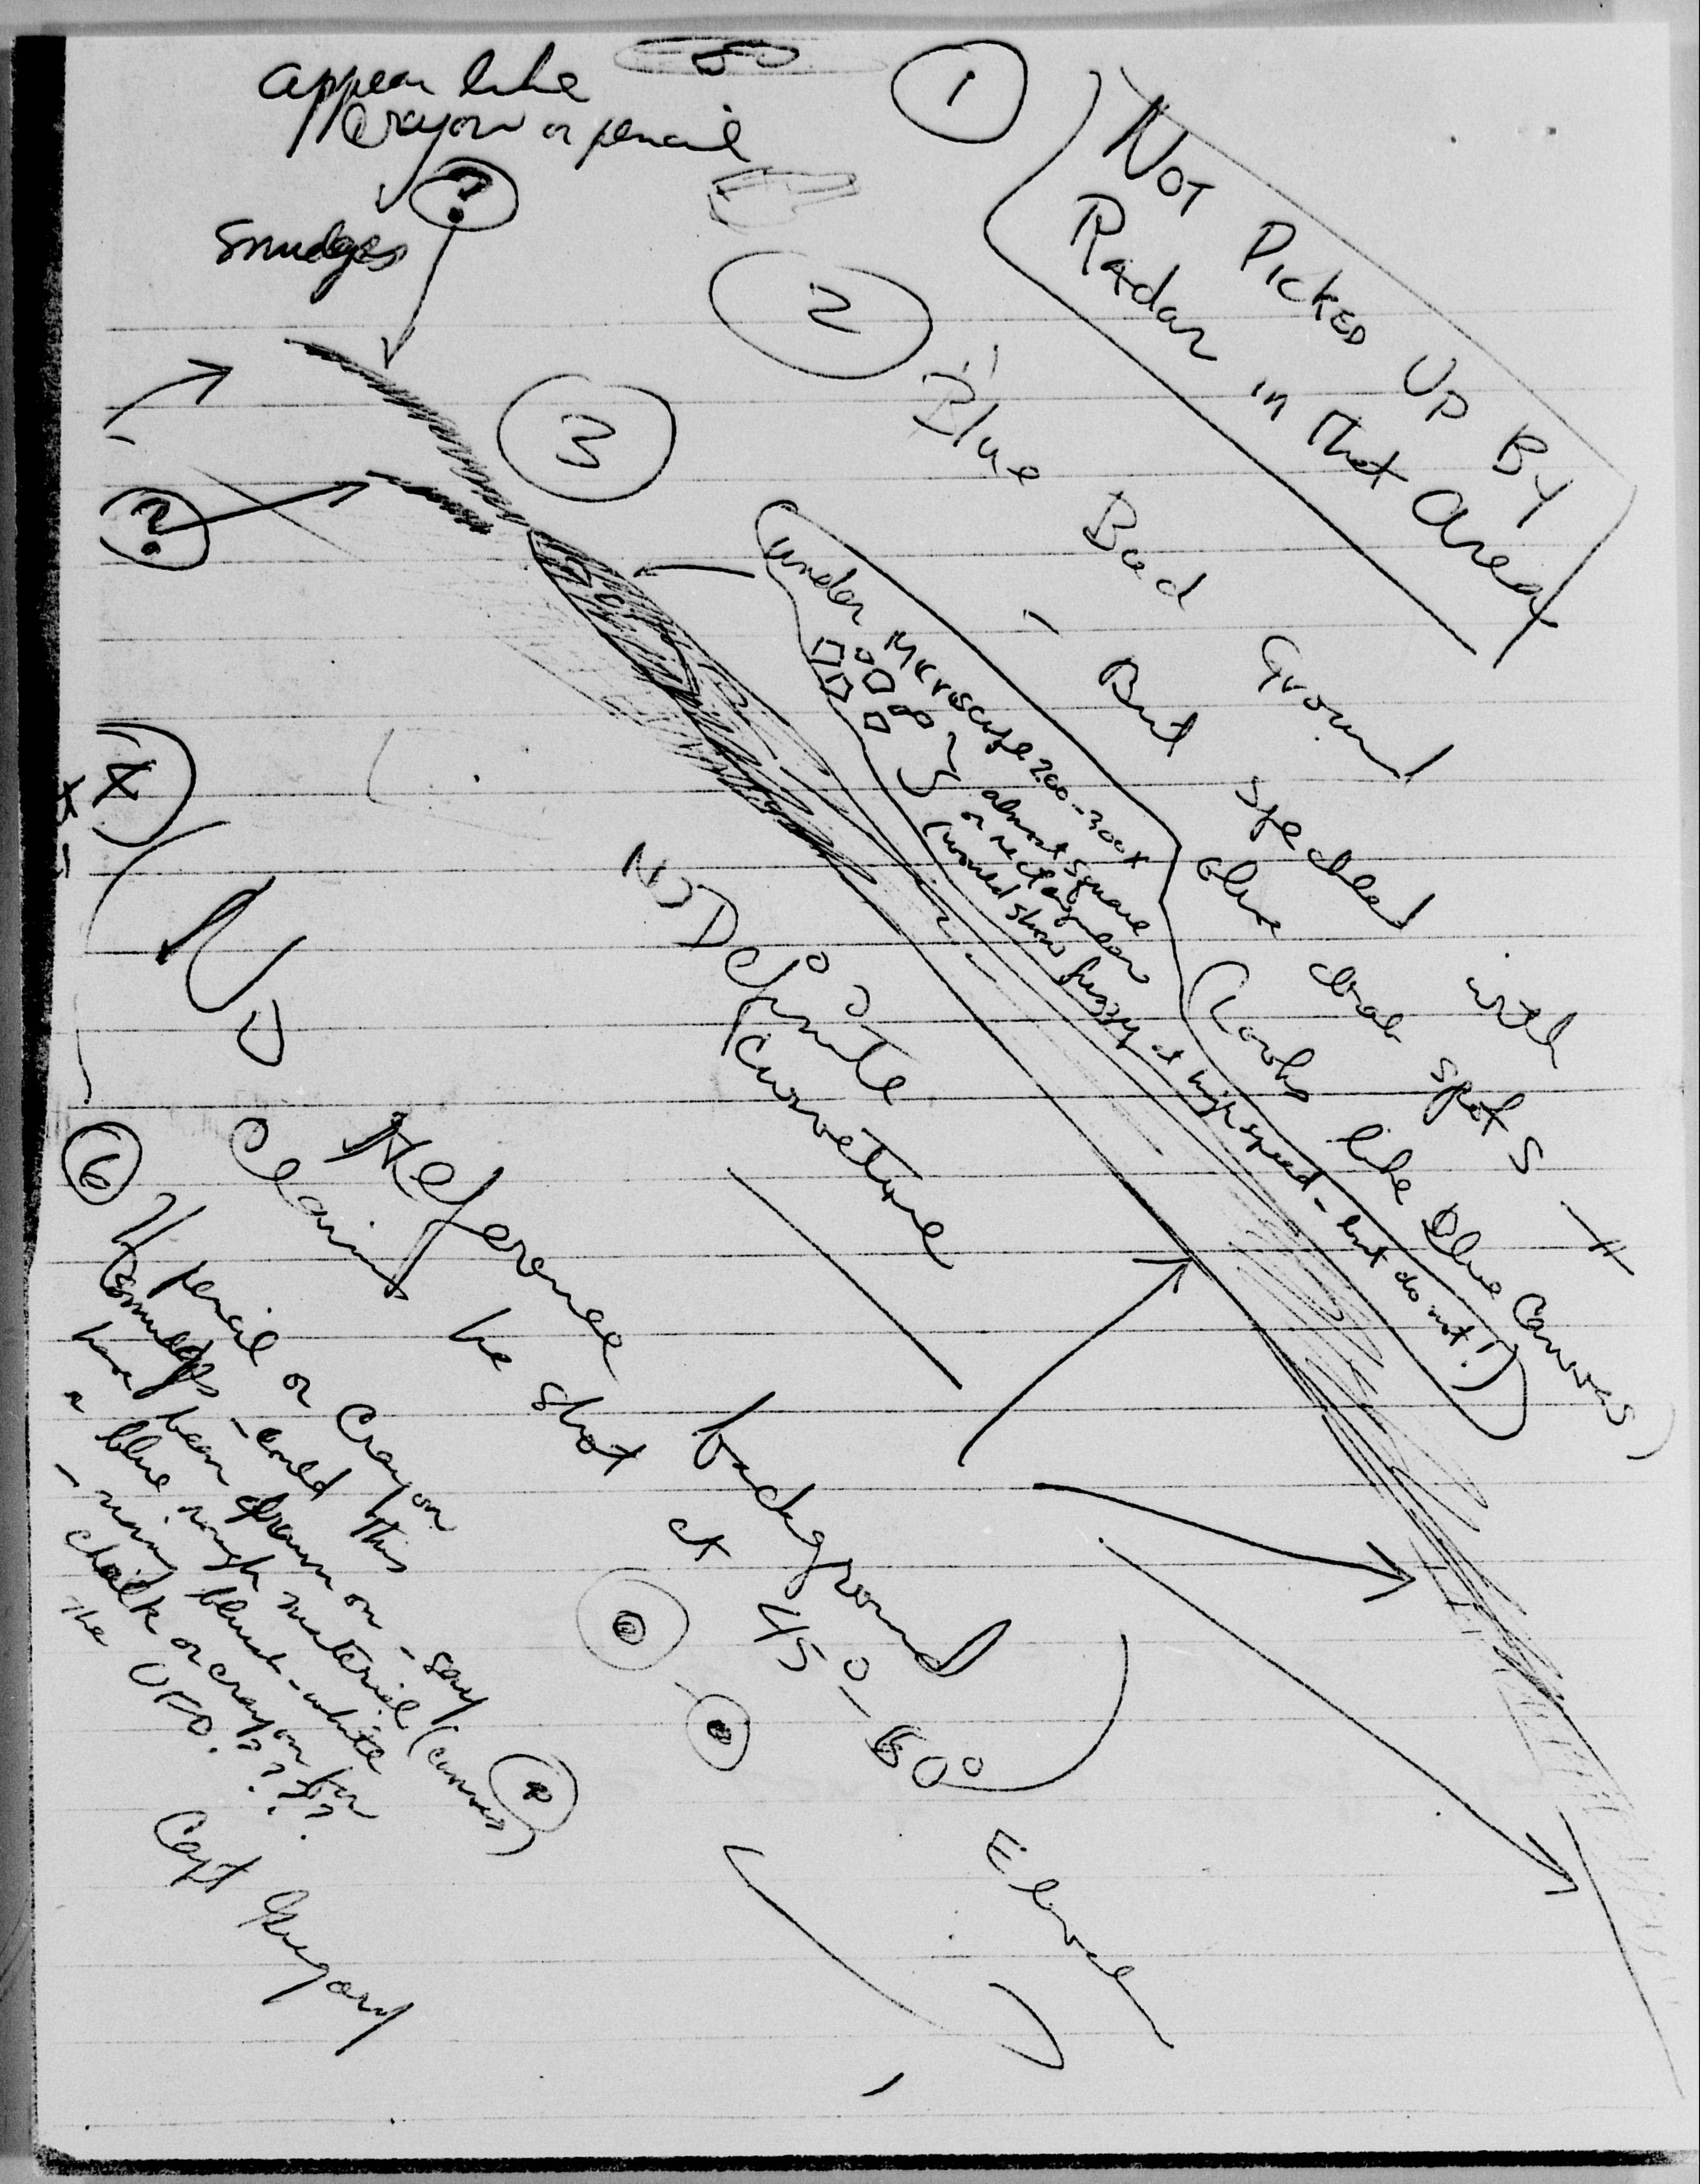 appear like
Crayon or pencil
?
smudges
?
1
NOT PICKED UP BY
Radar in that area
2
"Blue Back Ground
- But speckled with
blue drab spots #
(Looks like Blue Canvas)
3
under Microscope 200-300X
almost square
or rectangular
(would show fuzzy at hi speed - but do not!)
No Definite
Curvature
4
No Reference background
Claims he shot at 45°-60° Elevat
6 If pencil or Crayon
smudges - could this
have been drawn on - say
a blue rough material (canvas)
- using bluish-white
chalk or crayon for
the UFO. ????
Capt Gregory